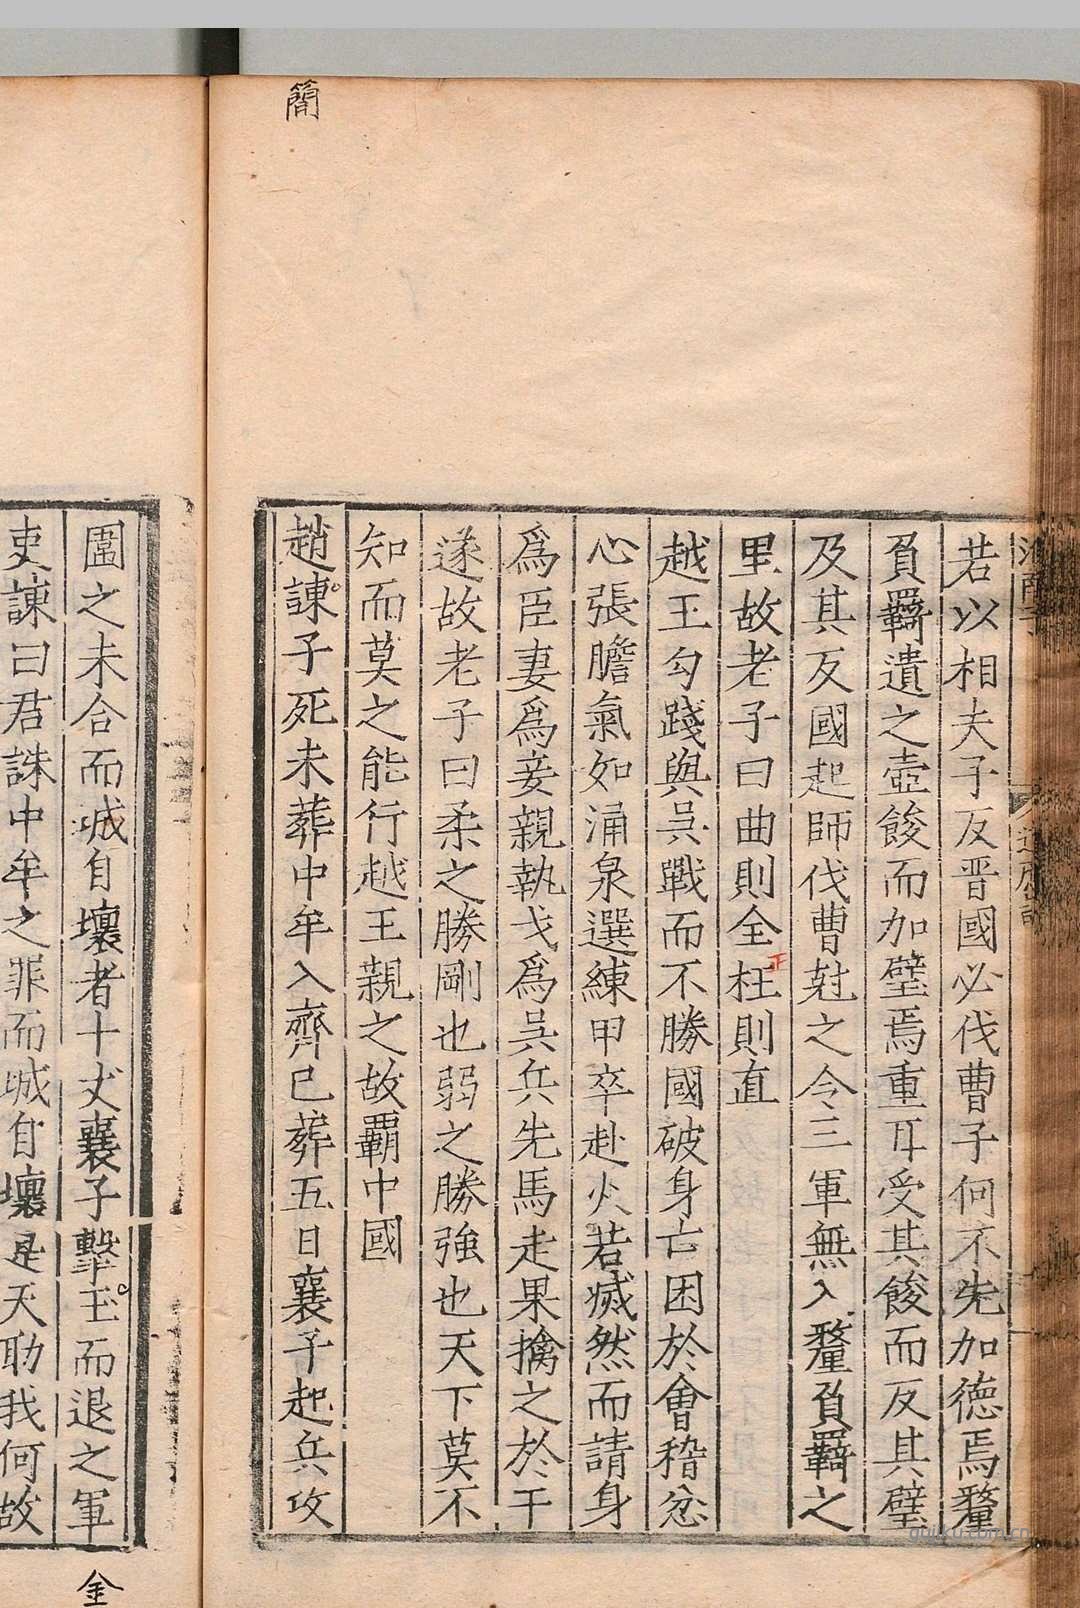 簡
若以相夫子反晋國必伐曹子何不先加德焉釐
負羈遺之壺餕而加璧焉重耳受其餕而反其璧
及其反國起師伐曹尅之令三軍無入釐負羈之
里故老子曰曲則全枉則直
正
越王勾踐與吳戰而不勝國破身亡困於會稽忿
心張膽氣如涌泉選練甲卒赴火若滅然而請身
爲臣妻爲妾親執戈爲吳兵先馬走果擒之於干
遂故老子曰柔之勝剛也弱之勝強也天下莫不
知而莫之能行越王親之故覇中國
趙諫子死未葬中牟入齊已葬五日襄子起兵攻
圍之未合而城自壞者十丈襄子擊玉而退之軍
吏諫曰君誅中牟之罪而城自壞是天助我何故
金